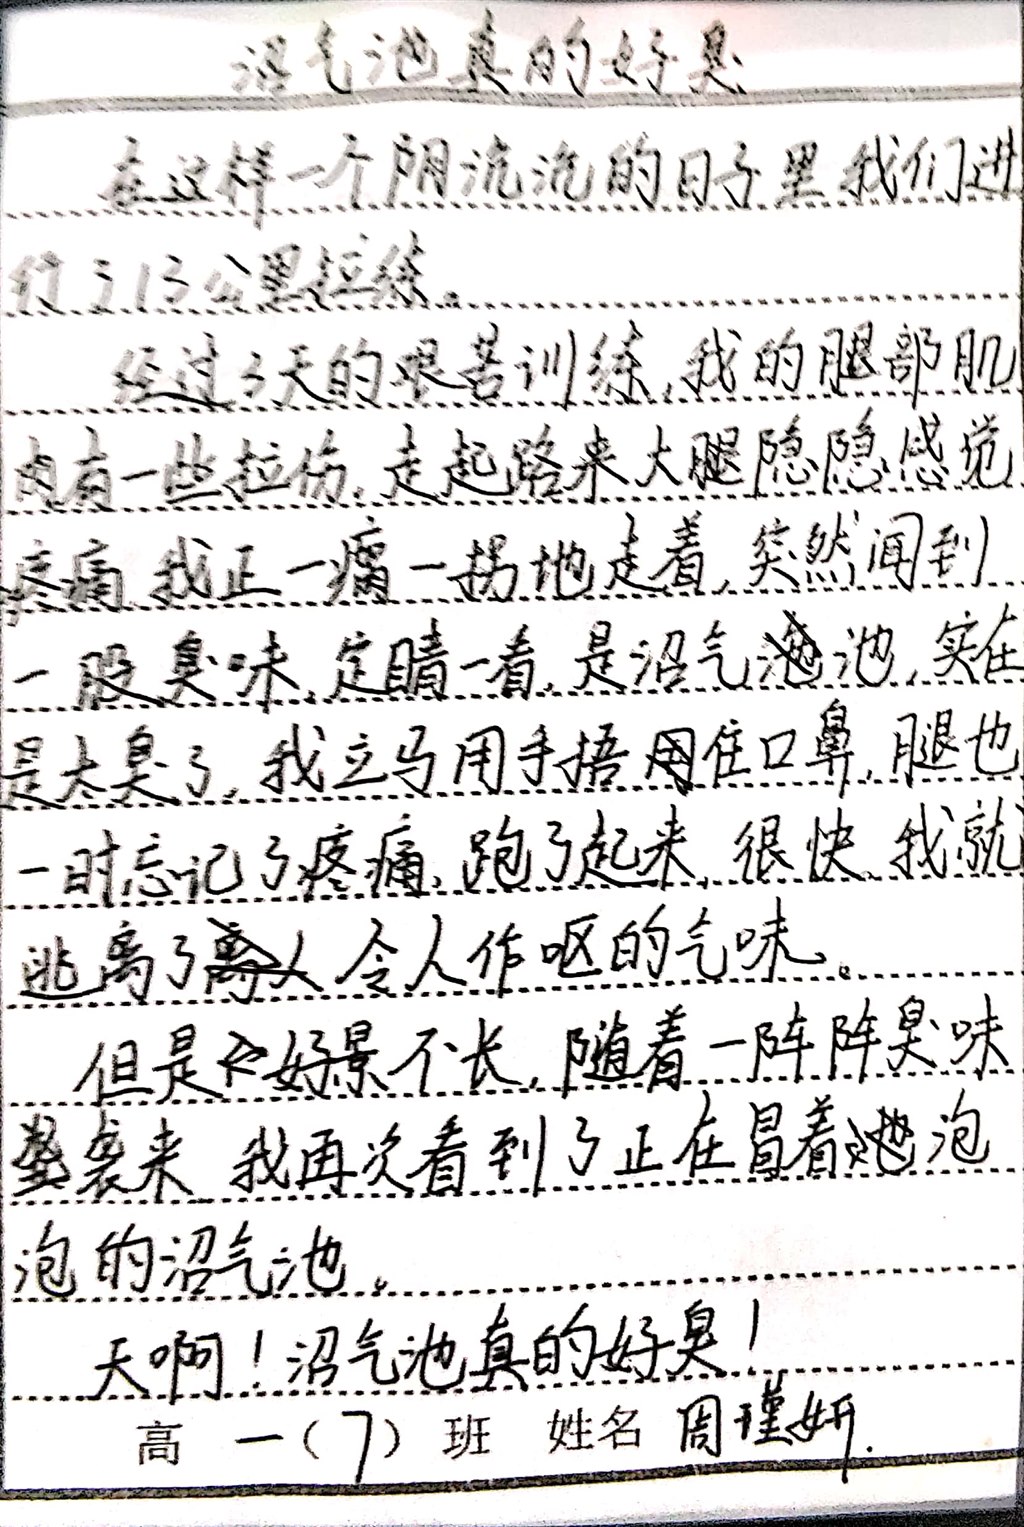 沼气池真的好臭
在这样一个阴沉沉的日子里,我们进
行了13公里拉练。
经过3天的艰苦训练,我的腿部肌
肉有一些拉伤,走起路来大腿隐隐感觉
疼痛,我正一瘸一拐地走着,突然闻到
一股臭味,定睛一看,是沼气池,实在
是太臭了,我立马用手捂住口鼻,腿也
一时忘记了疼痛,跑了起来,很快,我就
逃离了令人作呕的气味。
但是好景不长,随着一阵阵臭味
袭来,我再次看到了正在冒着泡
泡的沼气池。
天啊!沼气池真的好臭!
高一(7)班 姓名 周瑾妍.